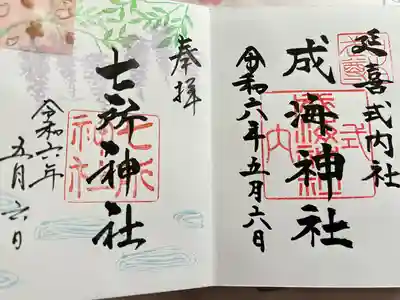 延喜式内社
成海神社
令和六年五月六日
奉拝
七所神社
七所
神社
令和六年
五月六日